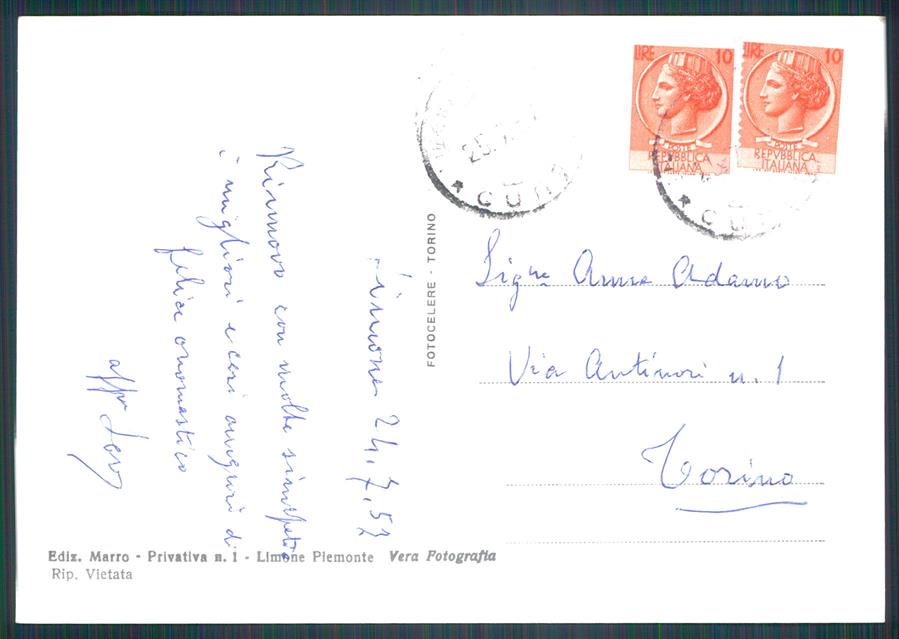 Limone 24.7.57
Rinnovo con molte simpatie
i migliori e cari auguri di
felice onomastico
aff
LIRE 10
POSTE
REPVBBLICA
ITALIANA
LIRE 10
POSTE
REPVBBLICA
ITALIANA
25.7
CUNEO
CUNEO
FOTOCELERE - TORINO
Sigra Anna Adamo
Via Antinori n. 1
Torino
Ediz. Marro - Privativa n. 1 - Limone Piemonte Vera Fotografia
Rip. Vietata